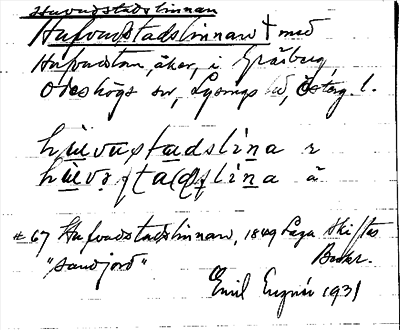 Huvudstadslinnan
Hufvudstadslinnan † med
Hufvudstan, åker, i Gråberg,
Ödeshögs sn, Lysings hd, Österg. l.
hu̲vustadslina r
hu̲vo sta slina ä
#67 Hufvudstadslinnan, 1849 Laga Skiftes
"sandjord" Beskr.
Emil Engnér 1931